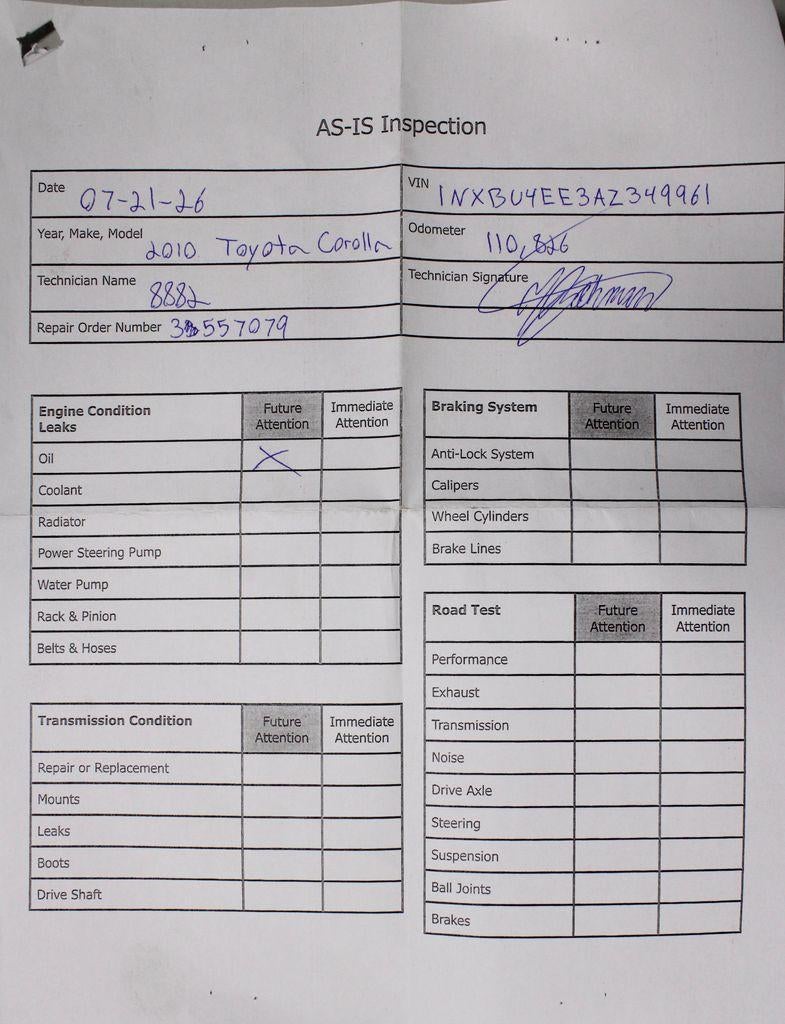 AS-IS Inspection
Date 07-21-26
VIN 1NXBU4EE3AZ349961
Year, Make, Model 2010 Toyota Corolla
Odometer 110,826
Technician Name 8882
Technician Signature
Repair Order Number
Engine Condition Leaks Future Attention Immediate Attention
Oil X
Coolant
Radiator
Power Steering Pump
Water Pump
Rack & Pinion
Belts & Hoses
Braking System Future Attention Immediate Attention
Anti-Lock System
Calipers
Wheel Cylinders
Brake Lines
Transmission Condition Future Attention Immediate Attention
Repair or Replacement
Mounts
Leaks
Boots
Drive Shaft
Road Test Future Attention Immediate Attention
Performance
Exhaust
Transmission
Noise
Drive Axle
Steering
Suspension
Ball Joints
Brakes